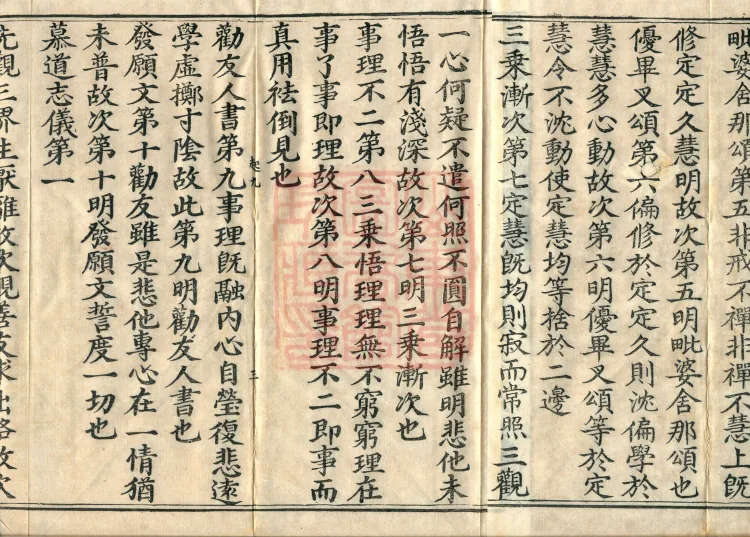 毗婆舍那頌第五非戒不禪非禪不慧上旣
修定定久慧明故次第五明毗婆舍那頌也
優畢叉頌第六偏修於定定久則沈偏學於
慧慧多心動故次第六明優畢叉頌等於定
慧令不沈動使定慧均等捨於二邊
三乘漸次第七定慧旣均則寂而常照三觀
一心何疑不遣何照不圓自解雖明悲他未
悟悟有淺深故次第七明三乘漸次也
事理不二第八三乘悟理理無不窮窮理在
事了事即理故次第八明事理不二即事而
真用祛倒見也
起九
三
勸友人書第九事理旣融內心自瑩復悲遠
學虛擲寸陰故此第九明勸友人書也
發願文第十勸友雖是悲他專心在一情猶
未普故次第十明發願文誓度一切也
慕道志儀第一
先觀三界生厭離故次親善友求出路故次